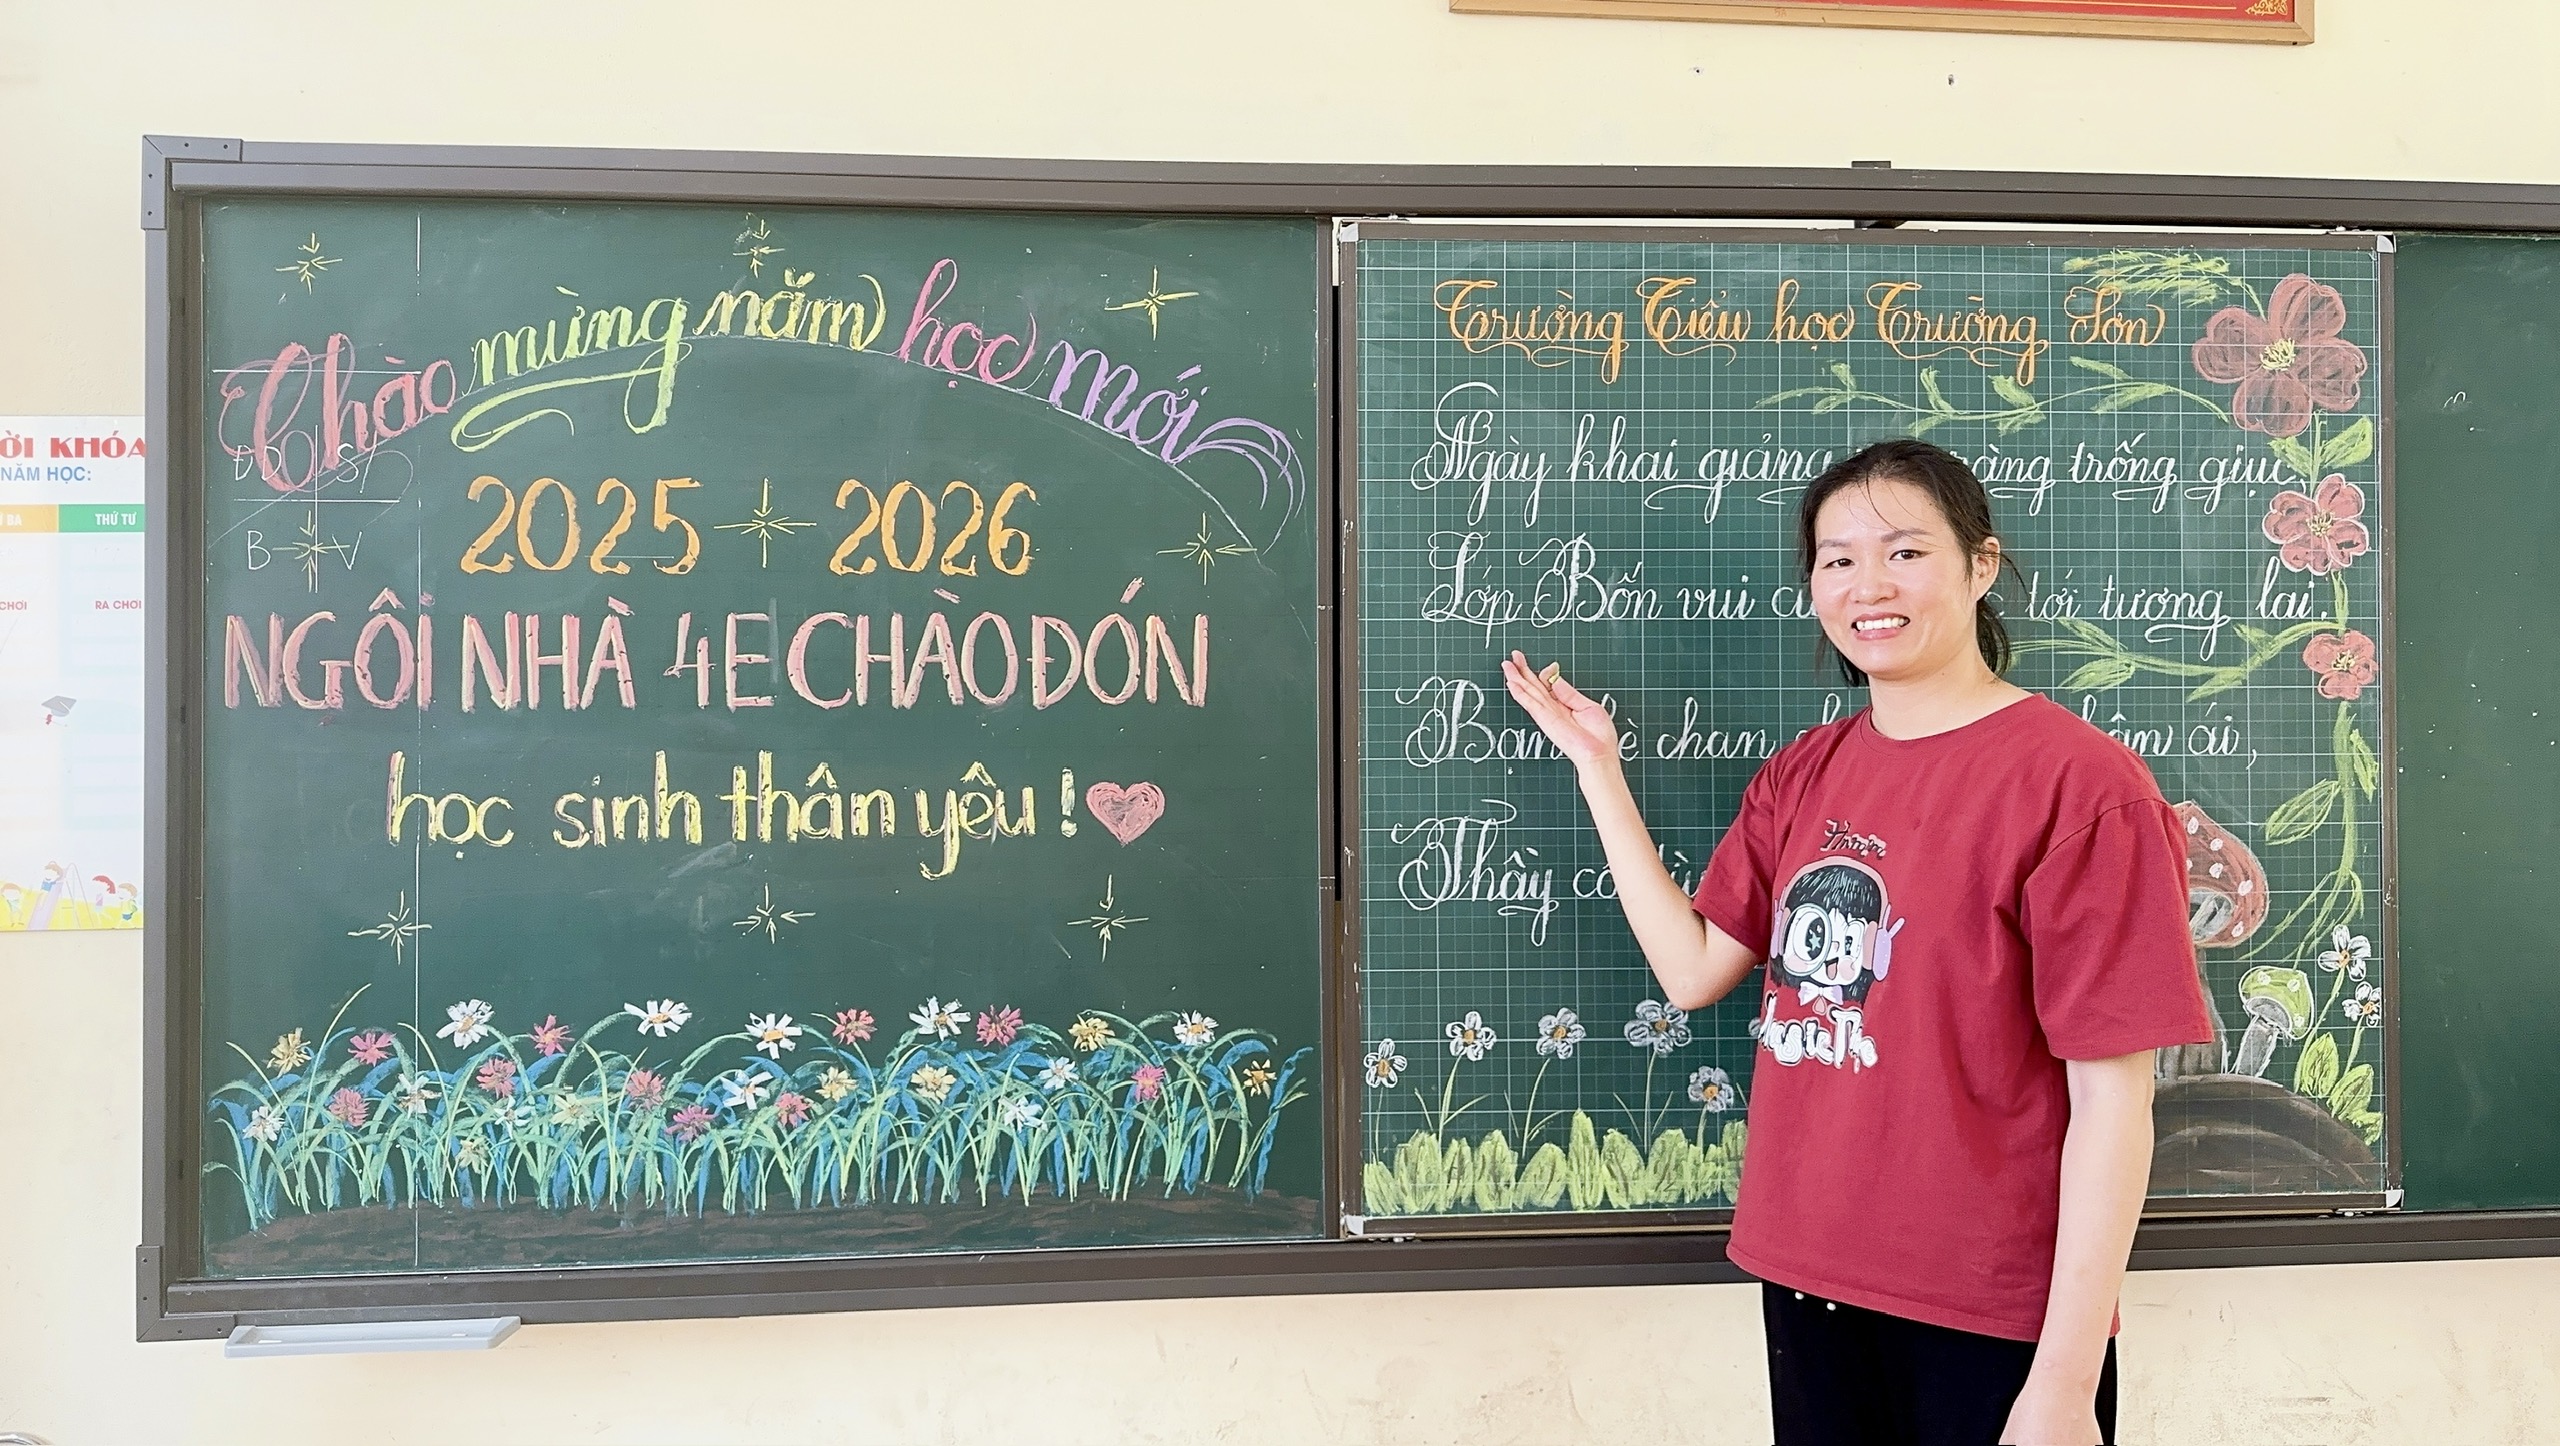 Chào mừng năm học mới
2025 - 2026
NGÔI NHÀ 4E CHÀO ĐÓN
học sinh thân yêu !
Đ D S/
B V
Trường Tiểu học Trường Sơn
Ngày khai giảng ràng trống giục,
Lớp Bốn vui tới tương lai.
Bạn bè chan ái,
Thầy cô
ỜI KHÓA
NĂM HỌC:
BA THỨ TƯ
CHƠI RA CHƠI
Hmm